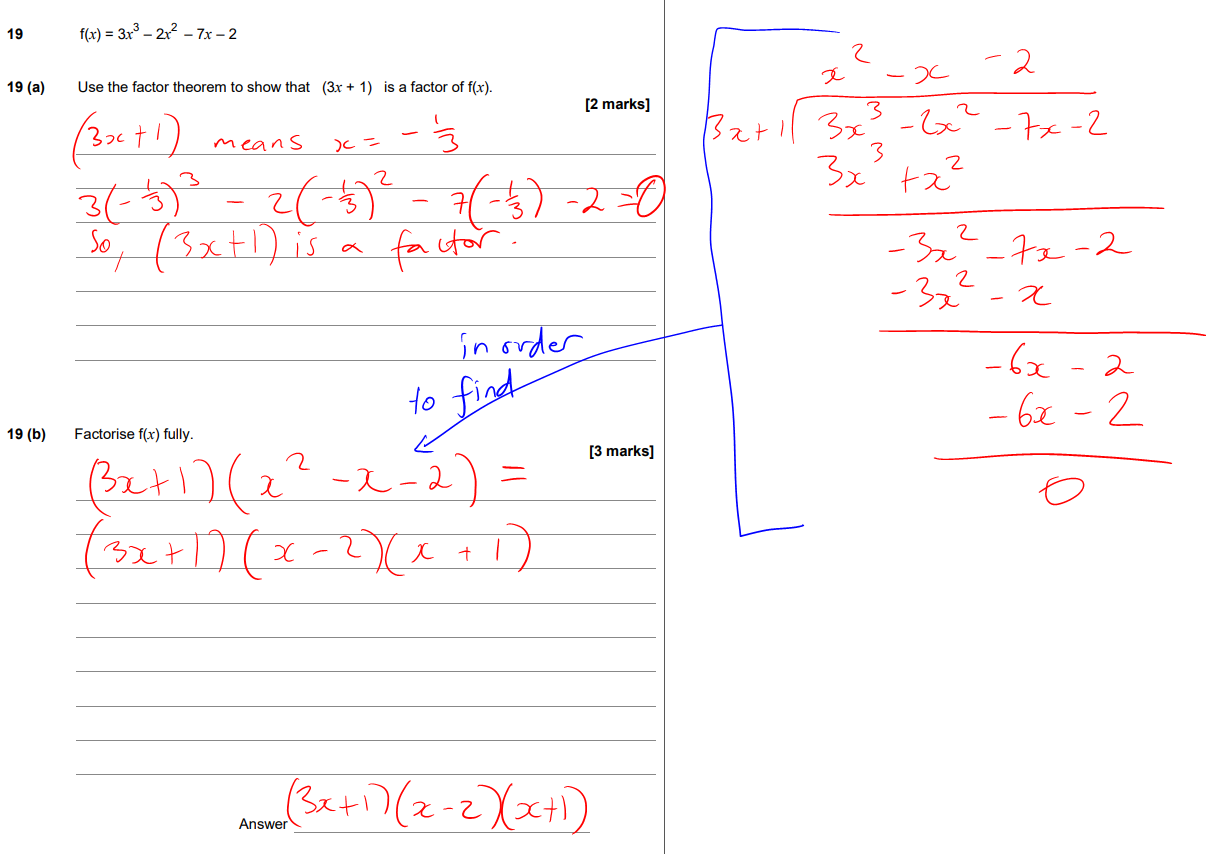 19 f(x) = 3x³ – 2x² – 7x – 2
19 (a) Use the factor theorem to show that (3x + 1) is a factor of f(x).
[2 marks]
(3x+1) means x = -1/3
3(-1/3)³ - 2(-1/3)² - 7(-1/3) - 2 = 0
So, (3x+1) is a factor.
in order
to find
19 (b) Factorise f(x) fully.
[3 marks]
(3x+1)(x² - x - 2) =
(3x+1)(x - 2)(x + 1)
Answer (3x+1)(x-2)(x+1)
x² - x - 2
3x+1 3x³ - 2x² - 7x - 2
3x³ + x²
-3x² - 7x - 2
-3x² - x
-6x - 2
-6x - 2
0